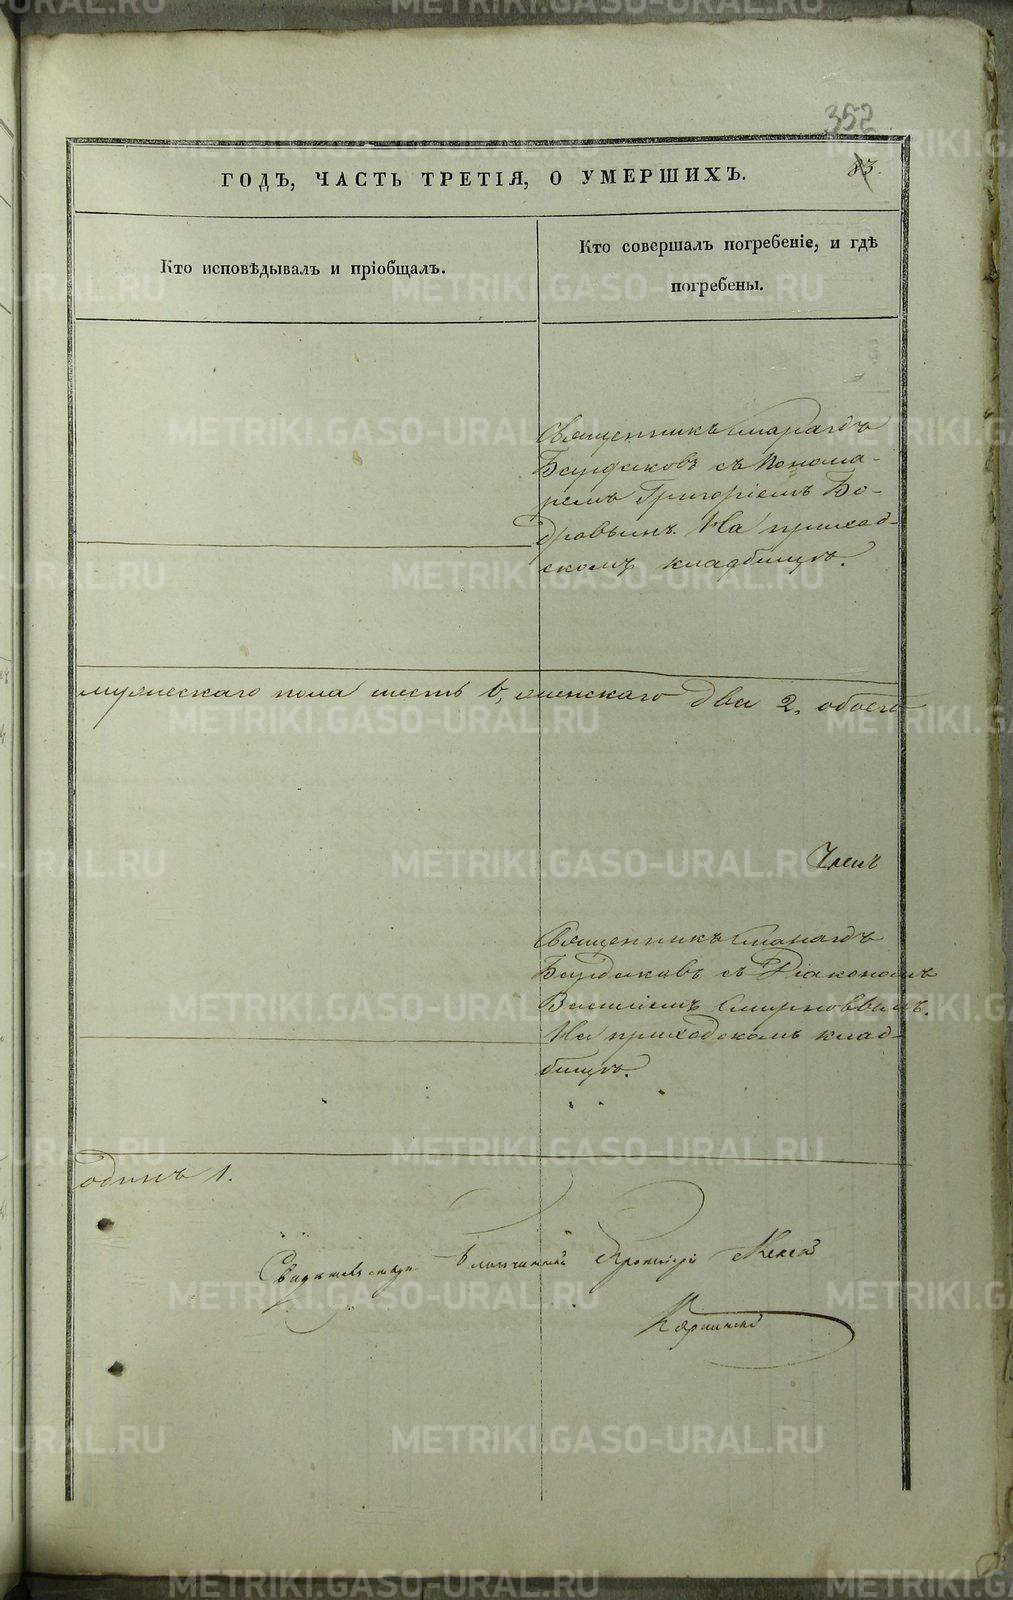 352
83.
ГОДЪ, ЧАСТЬ ТРЕТІЯ, О УМЕРШИХЪ.
Кто исповѣдывалъ и пріобщалъ.
Кто совершалъ погребеніе, и гдѣ
погребены.
Священникъ Смарагдъ
Бурдаковъ съ Понома-
ремъ Григоріемъ Бо-
дровымъ. На приход-
скомъ кладбищѣ.
мужескаго пола шесть 6, женскаго два 2, обоего
Священникъ Смарагдъ
Бурдаковъ съ Діакономъ
Василіемъ Смирновымъ.
На приходскомъ клад-
бищѣ.
одинъ 1.
Благочинный Протоіерей Алексѣй
METRIKI.GASO-URAL.RU